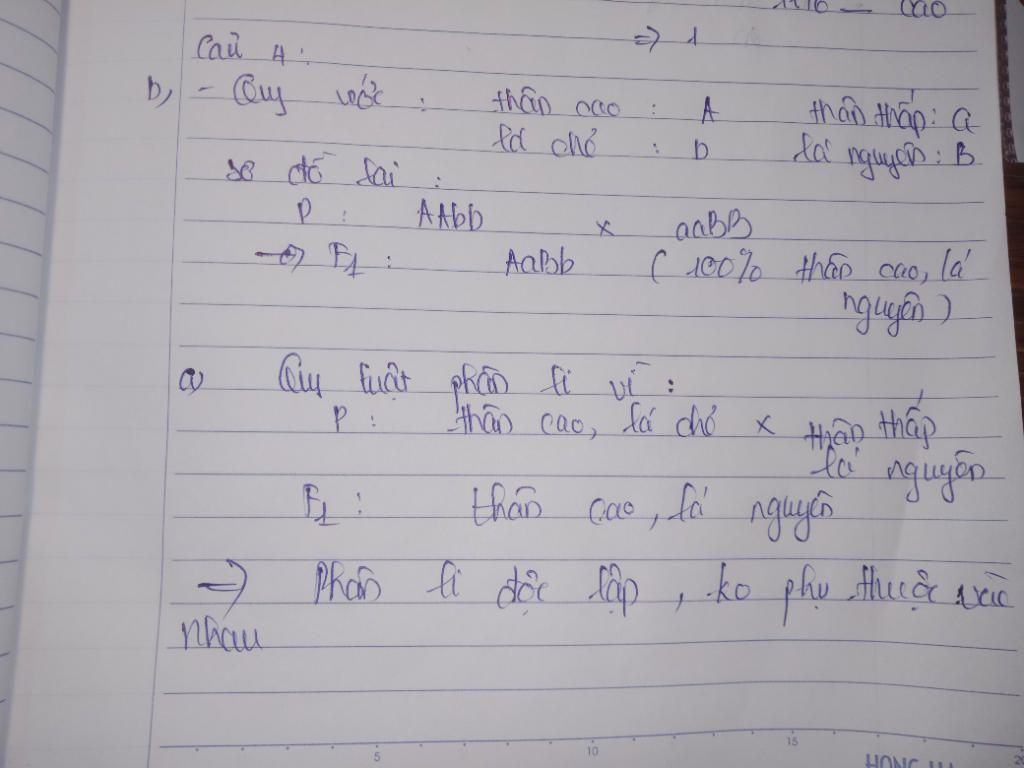 1110 — cao
=> 1
Câu 4:
b, - Quy ước: thân cao: A thân thấp: a
lá chẻ: b lá nguyên: B
sơ đồ lai:
P: AAbb x aaBB
-> F1: AaBb (100% thân cao, lá
nguyên)
a) Quy luật phân li vì:
P: thân cao, lá chẻ x thân thấp
lá nguyên
F1: thân cao, lá nguyên
=> Phân li độc lập, ko phụ thuộc vào
nhau
5 10 15 20